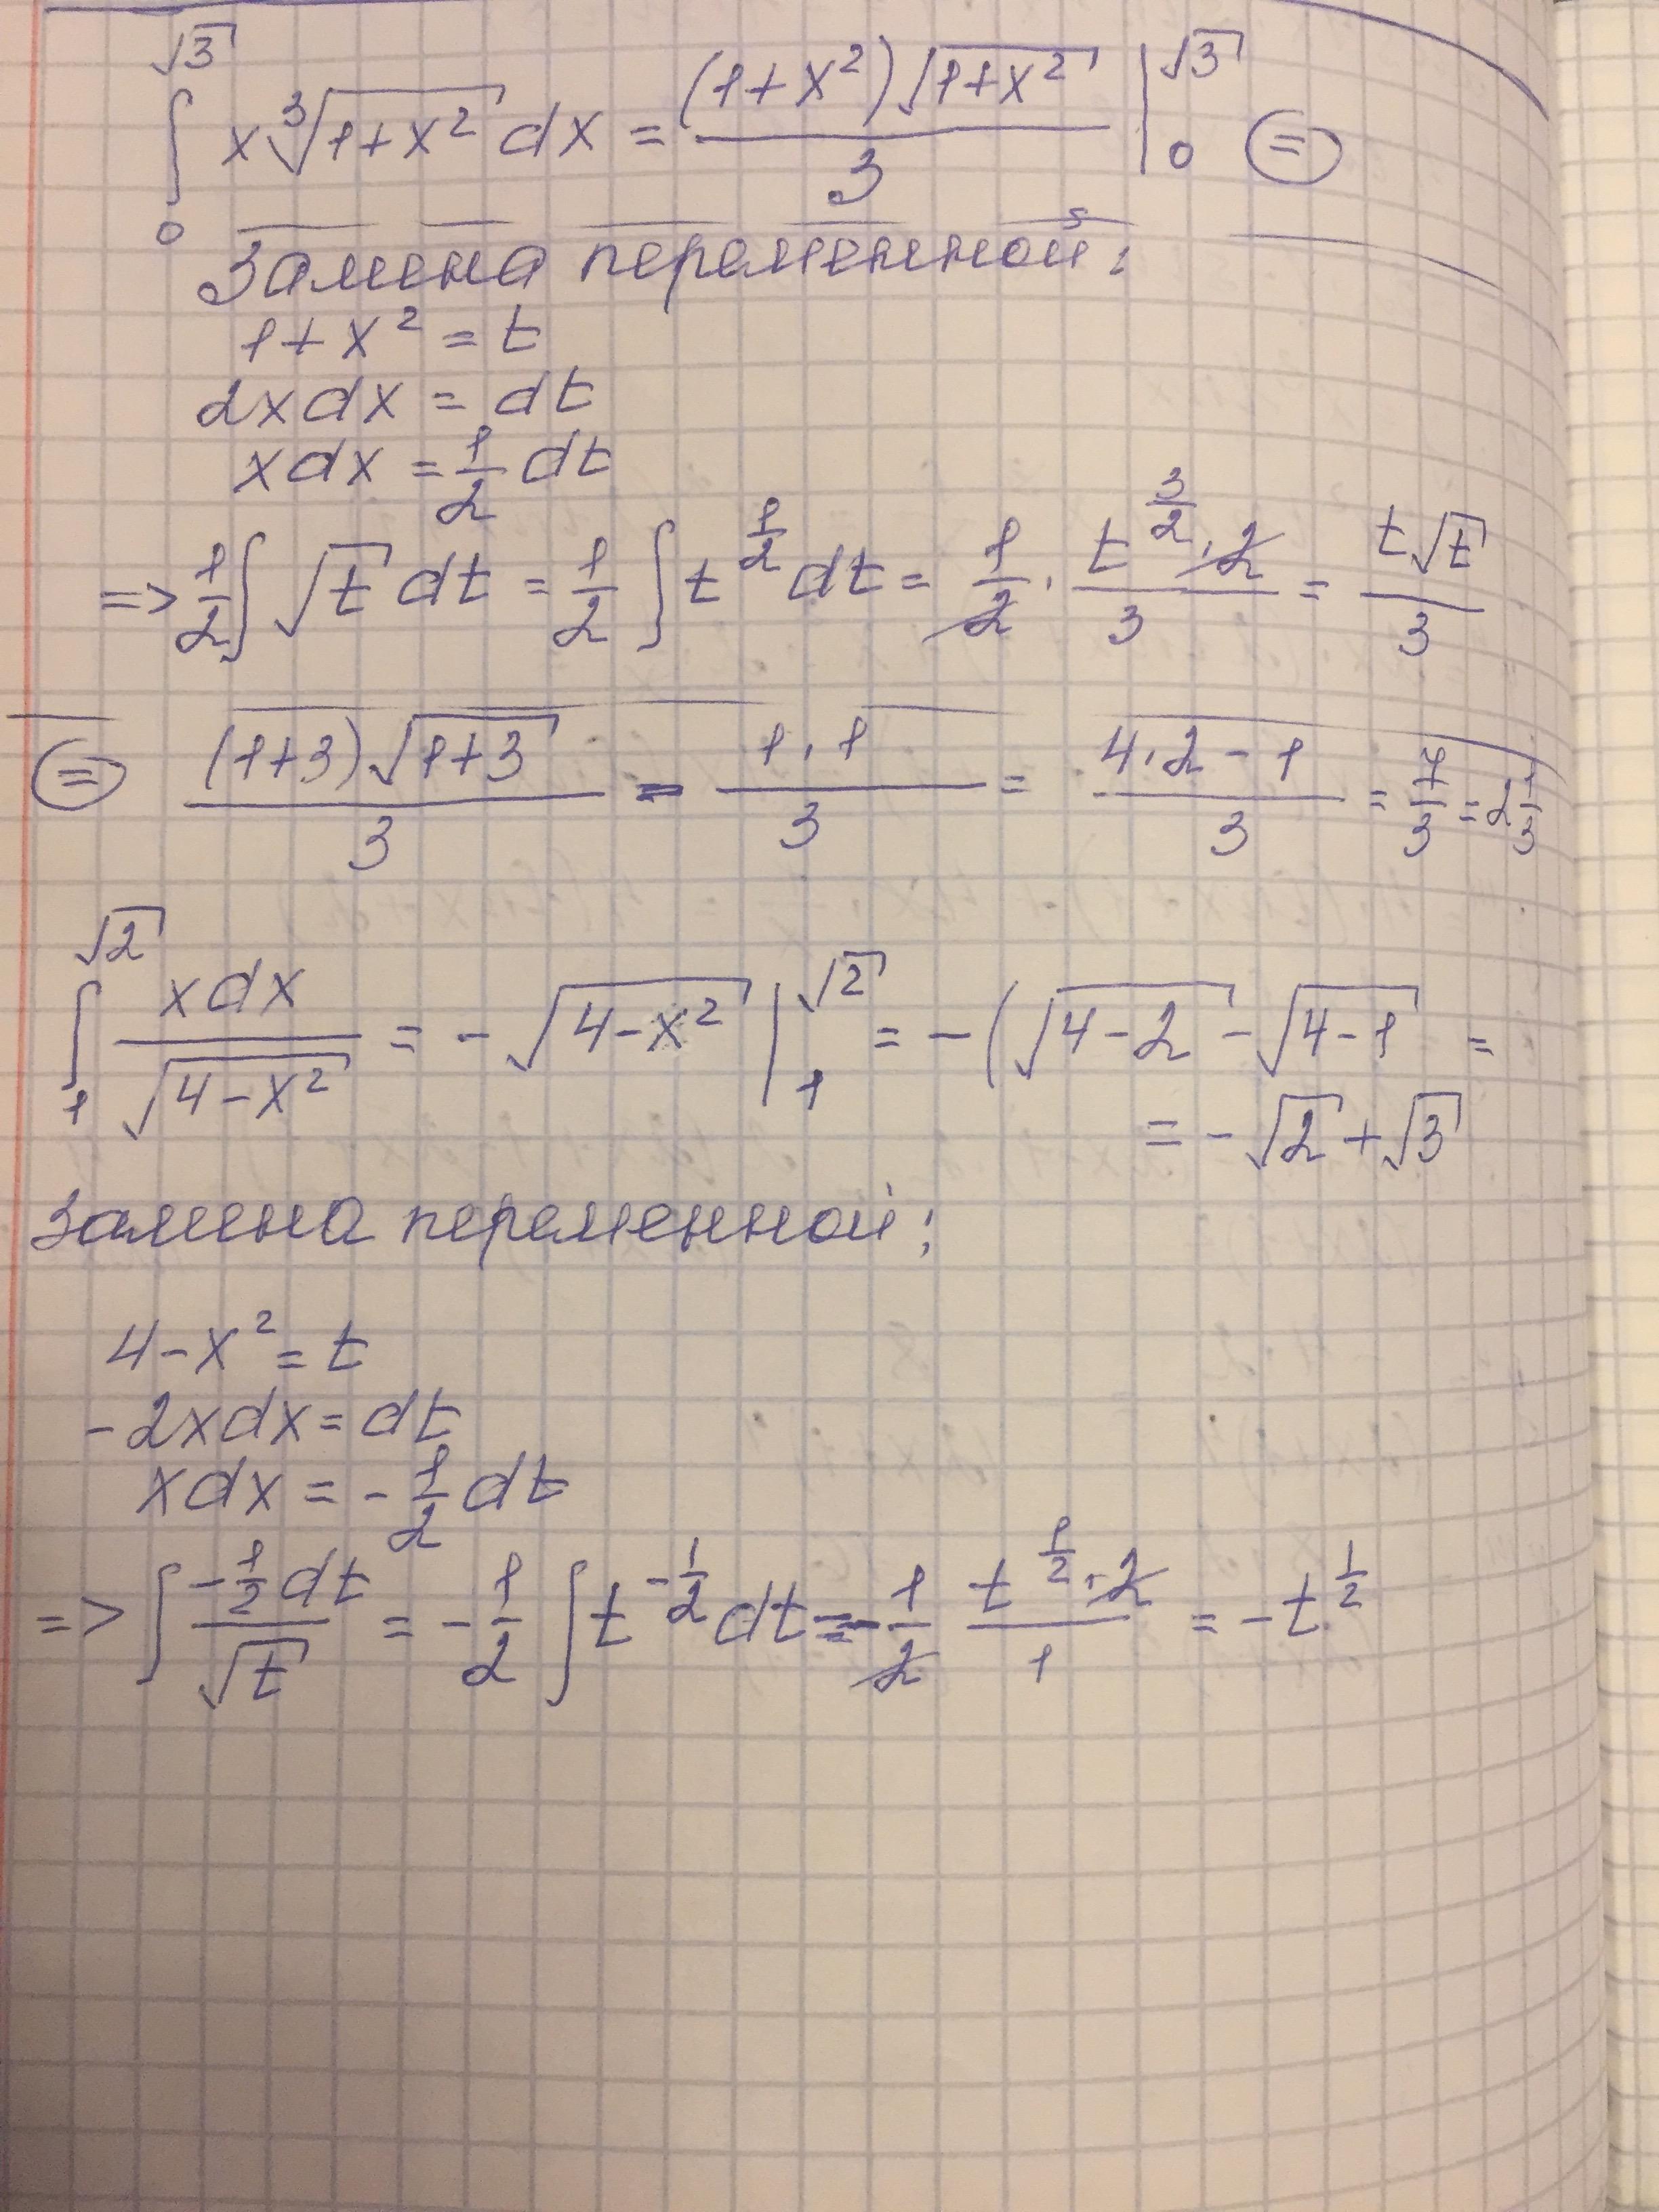 ∫₀^√3 x∛(1+x²) dx = (1+x²)√(1+x²) / 3 |₀^√3 ⊜
Замена переменной:
1+x² = t
2xdx = dt
xdx = 1/2 dt
=> 1/2 ∫ √t dt = 1/2 ∫ t^(1/2) dt = 1/2 · t^(3/2)·2 / 3 = t√t / 3
⊜ (1+3)√(1+3) / 3 - 1·1 / 3 = 4·2-1 / 3 = 7/3 = 2 1/3
∫₁^√2 xdx / √(4-x²) = -√(4-x²) |₁^√2 = -(√(4-2) - √(4-1) =
= -√2 + √3
Замена переменной:
4-x² = t
-2xdx = dt
xdx = -1/2 dt
=> ∫ -1/2 dt / √t = -1/2 ∫ t^(-1/2) dt = -1/2 t^(1/2)·2 / 1 = -t^(1/2)